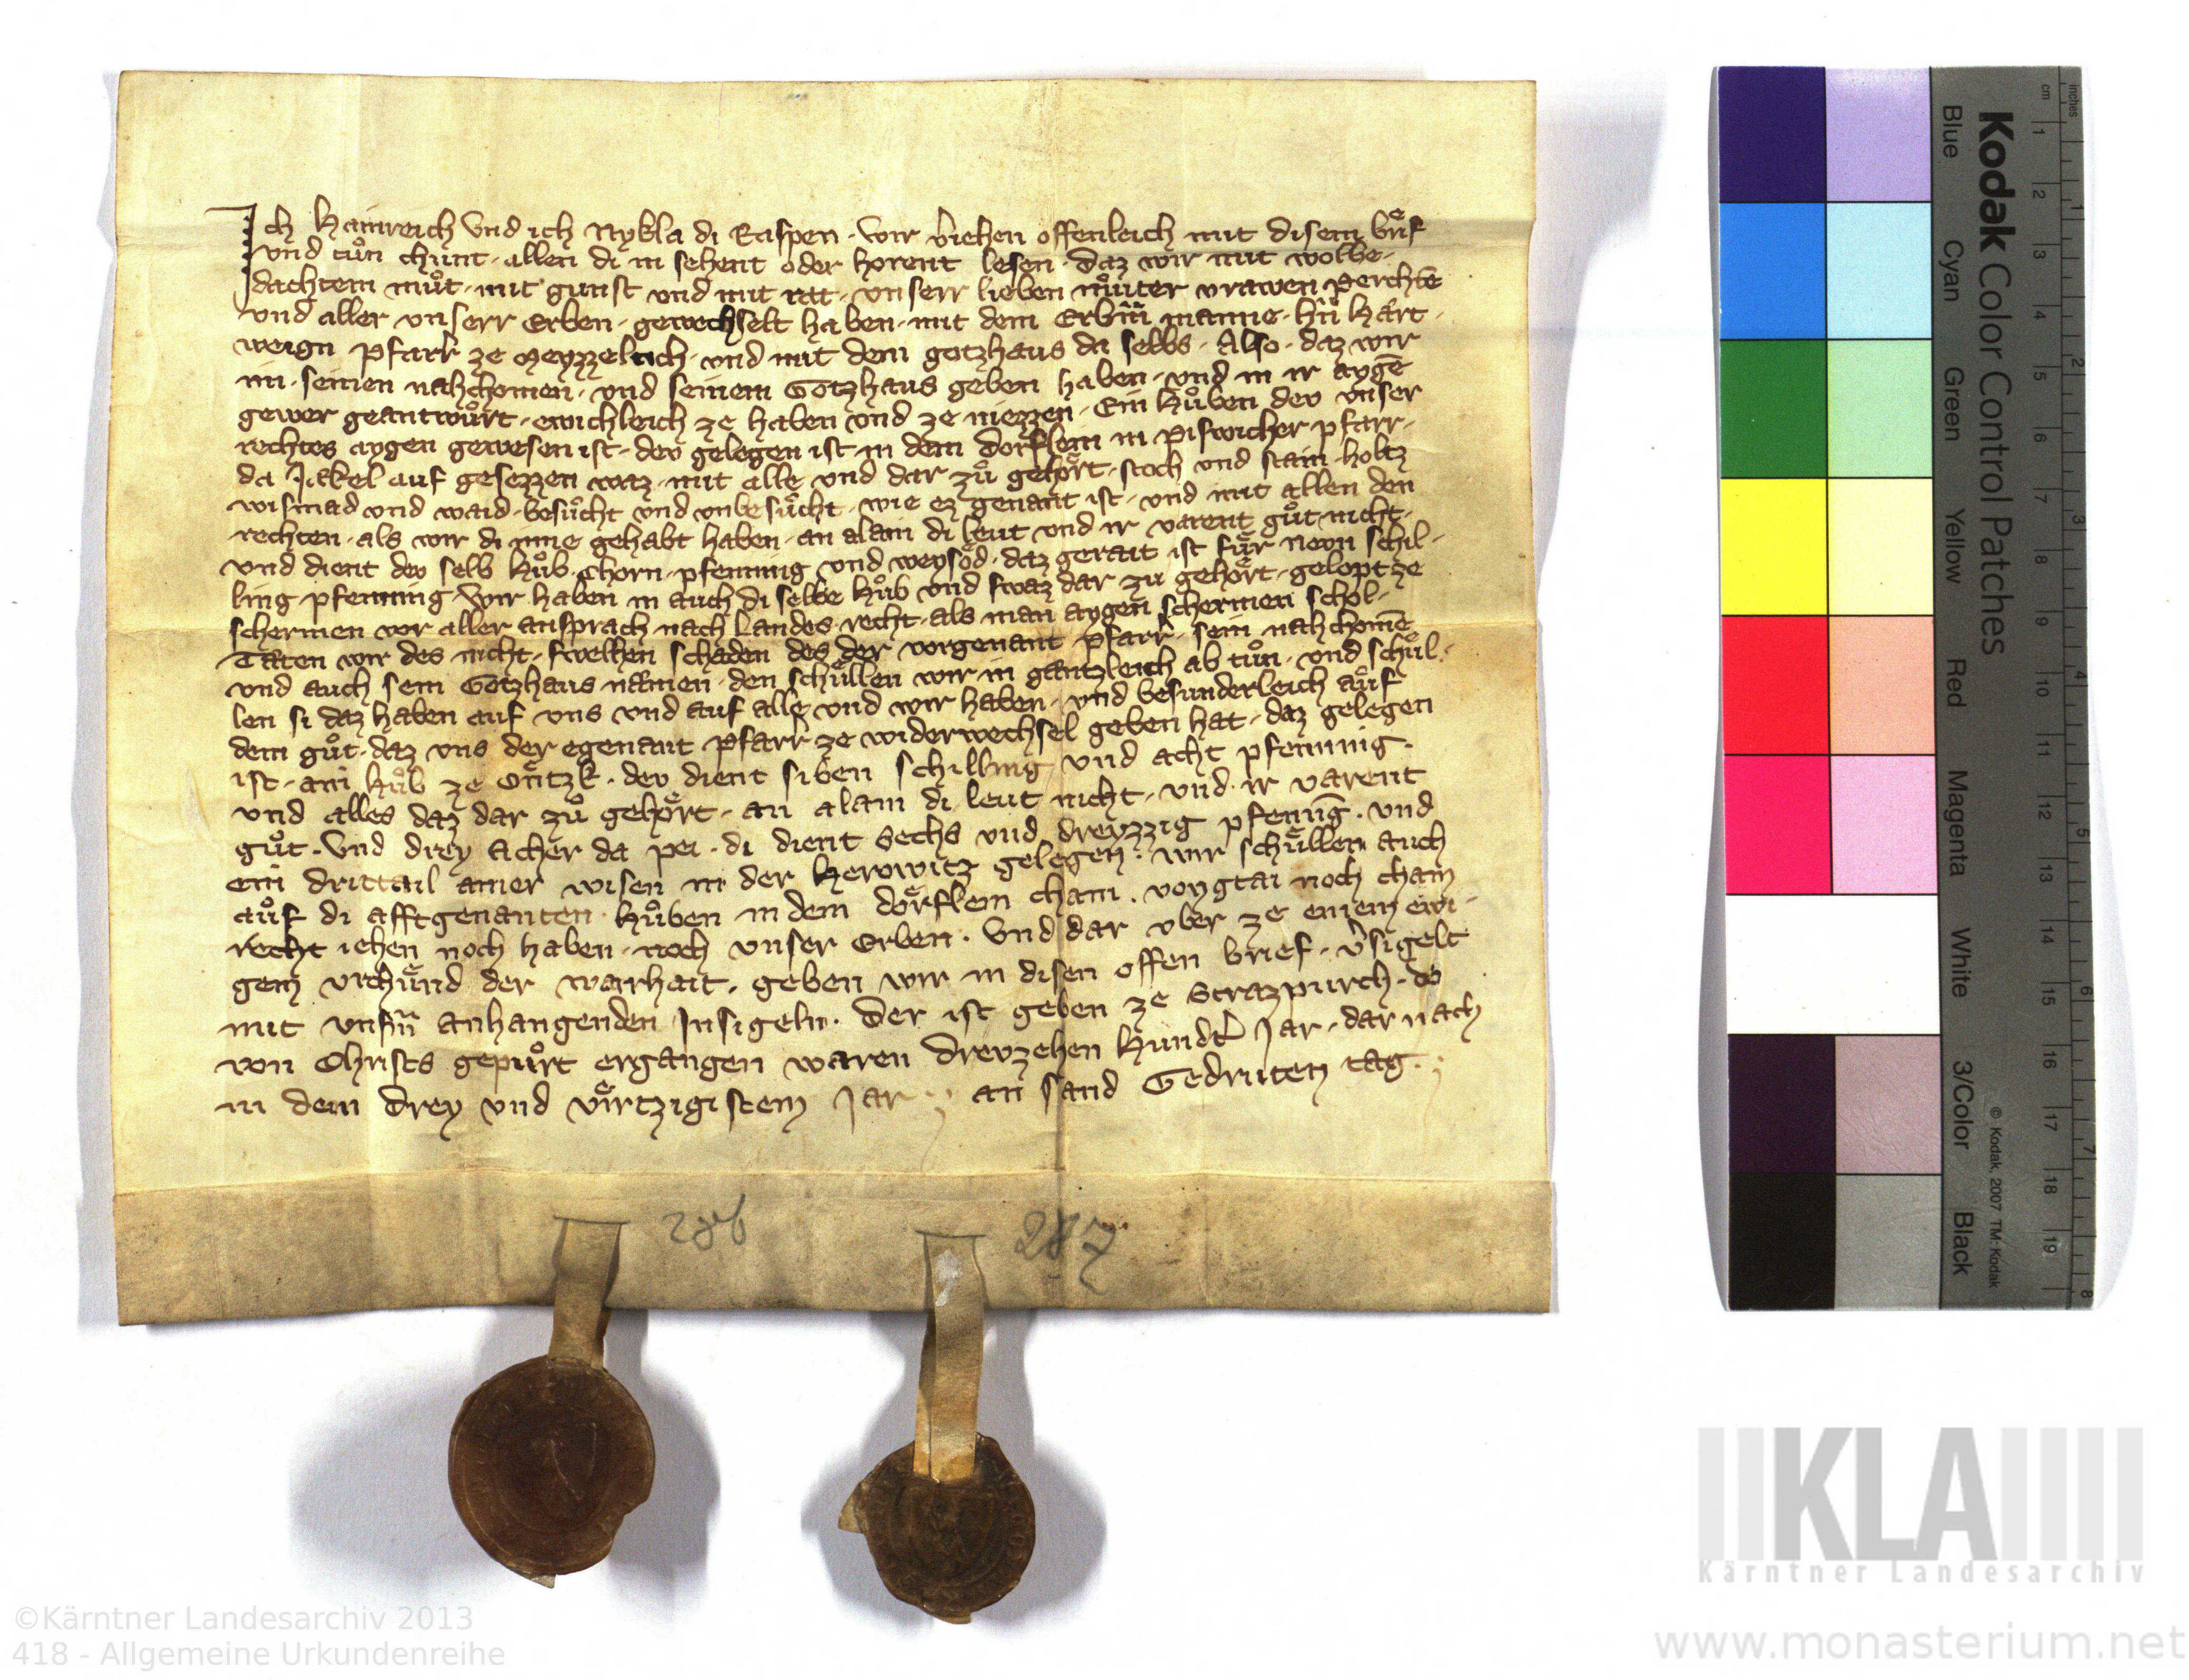 Ich Hainreich vnd ich Nykla di Raspen. wir v̓iehen offenleich mit disem brif
vnd tůn chunt. allen di in sehent oder horent lesen. daz wir mit wolbe-
dachtem můt. mit gunst vnd mit rat. vnserr lieben můter vrawen Perchtē
vnd aller vnserr Erben. gewechselt haben. mit dem Erbm̄ manne. hn̄ Hart-
weign pfarr ze Meyzzeleich. vnd mit dem gotzhaus da selbs. Also. daz wir
im. seinen nahchomen. vnd seinem Gotzhaus geben haben. vnd in ir aygē
gewer geantwůrt. ewichleich ze haben vnd ze niezzen. Ein Hůben dev vnser
rechtes aygen gewesen ist. dev gelegen ist. in dem dorflein in Pisweicher pfarr.
da Jakel auf gesezzen waz. mit alle vnd dar zů gehort. stoch vnd stain. holtz
wismad vnd waid. besůcht vnd vnbesůcht. wie ez genant ist. vnd mit allen den
rechten. als wir di inne gehabt haben. an alain di leut vnd ir varent gůt nicht.
vnd dient dev selb Hůb. Chorn. pfenning vnd weysod. daz gerait ist fůr nevn schil-
ling pfenning. Wir haben in auch di selbe Hůb vnd swaz dar zu gehort. gelopt ze
schermen vor aller ansprach nach Landes recht. als man aygen schermen schol.
Taten wir des nicht. swelhen schaden des der vorgenant pfarr. sein nahchomē
vnd auch sein Gotzhaus namen. den schullen wir in gantzleich ab tůn. vnd schůl-
len si daz haben auf vns vnd auf alle vnd wir haben. vnd besunderleich aůf
dem gůt. daz vns der egenant pfarr ze widerwechsel geben hat. daz gelegen
ist. ain hůb ze Ontzk. dev dient siben schilling vnd acht pfenning.
vnd alles daz dar zů gehort. an alain di leut nicht. vnd ir varent
gůt. Vnd drey Acher da pei. di dient Sechs vnd dreyzzig pfenīg. vnd
ein drittail ainer wisen in der Kerowitz gelegen. wir schůllen auch
aůf di afftgenanten Hůben in dem dorflein chain. voygtai noch chain
recht iehen noch haben. noch vnser Erben. Vnd dar vber ze einem ewi-
gem vrchund der warhait. geben wir in disen offen brief. v̓sigelt
mit vnsn̄ anhangenden Insigeln. Der ist geben ze Strazpurch. do
von Christs gepůrt ergangen waren drevzehen Hundt̓ Jar. dar nach
in dem drey vnd virtzigistem Jar. an sand Gedruten tag.
286 287
Kodak Color Control Patches
Blue Cyan Green Yellow Red Magenta White 3/Color Black
© Kodak, 2007 TM: Kodak
inches 1 2 3 4 5 6 7 8
cm 1 2 3 4 5 6 7 8 9 10 11 12 13 14 15 16 17 18 19
KLA
Kärntner Landesarchiv
©Kärntner Landesarchiv 2013
418 - Allgemeine Urkundenreihe
www.monasterium.net